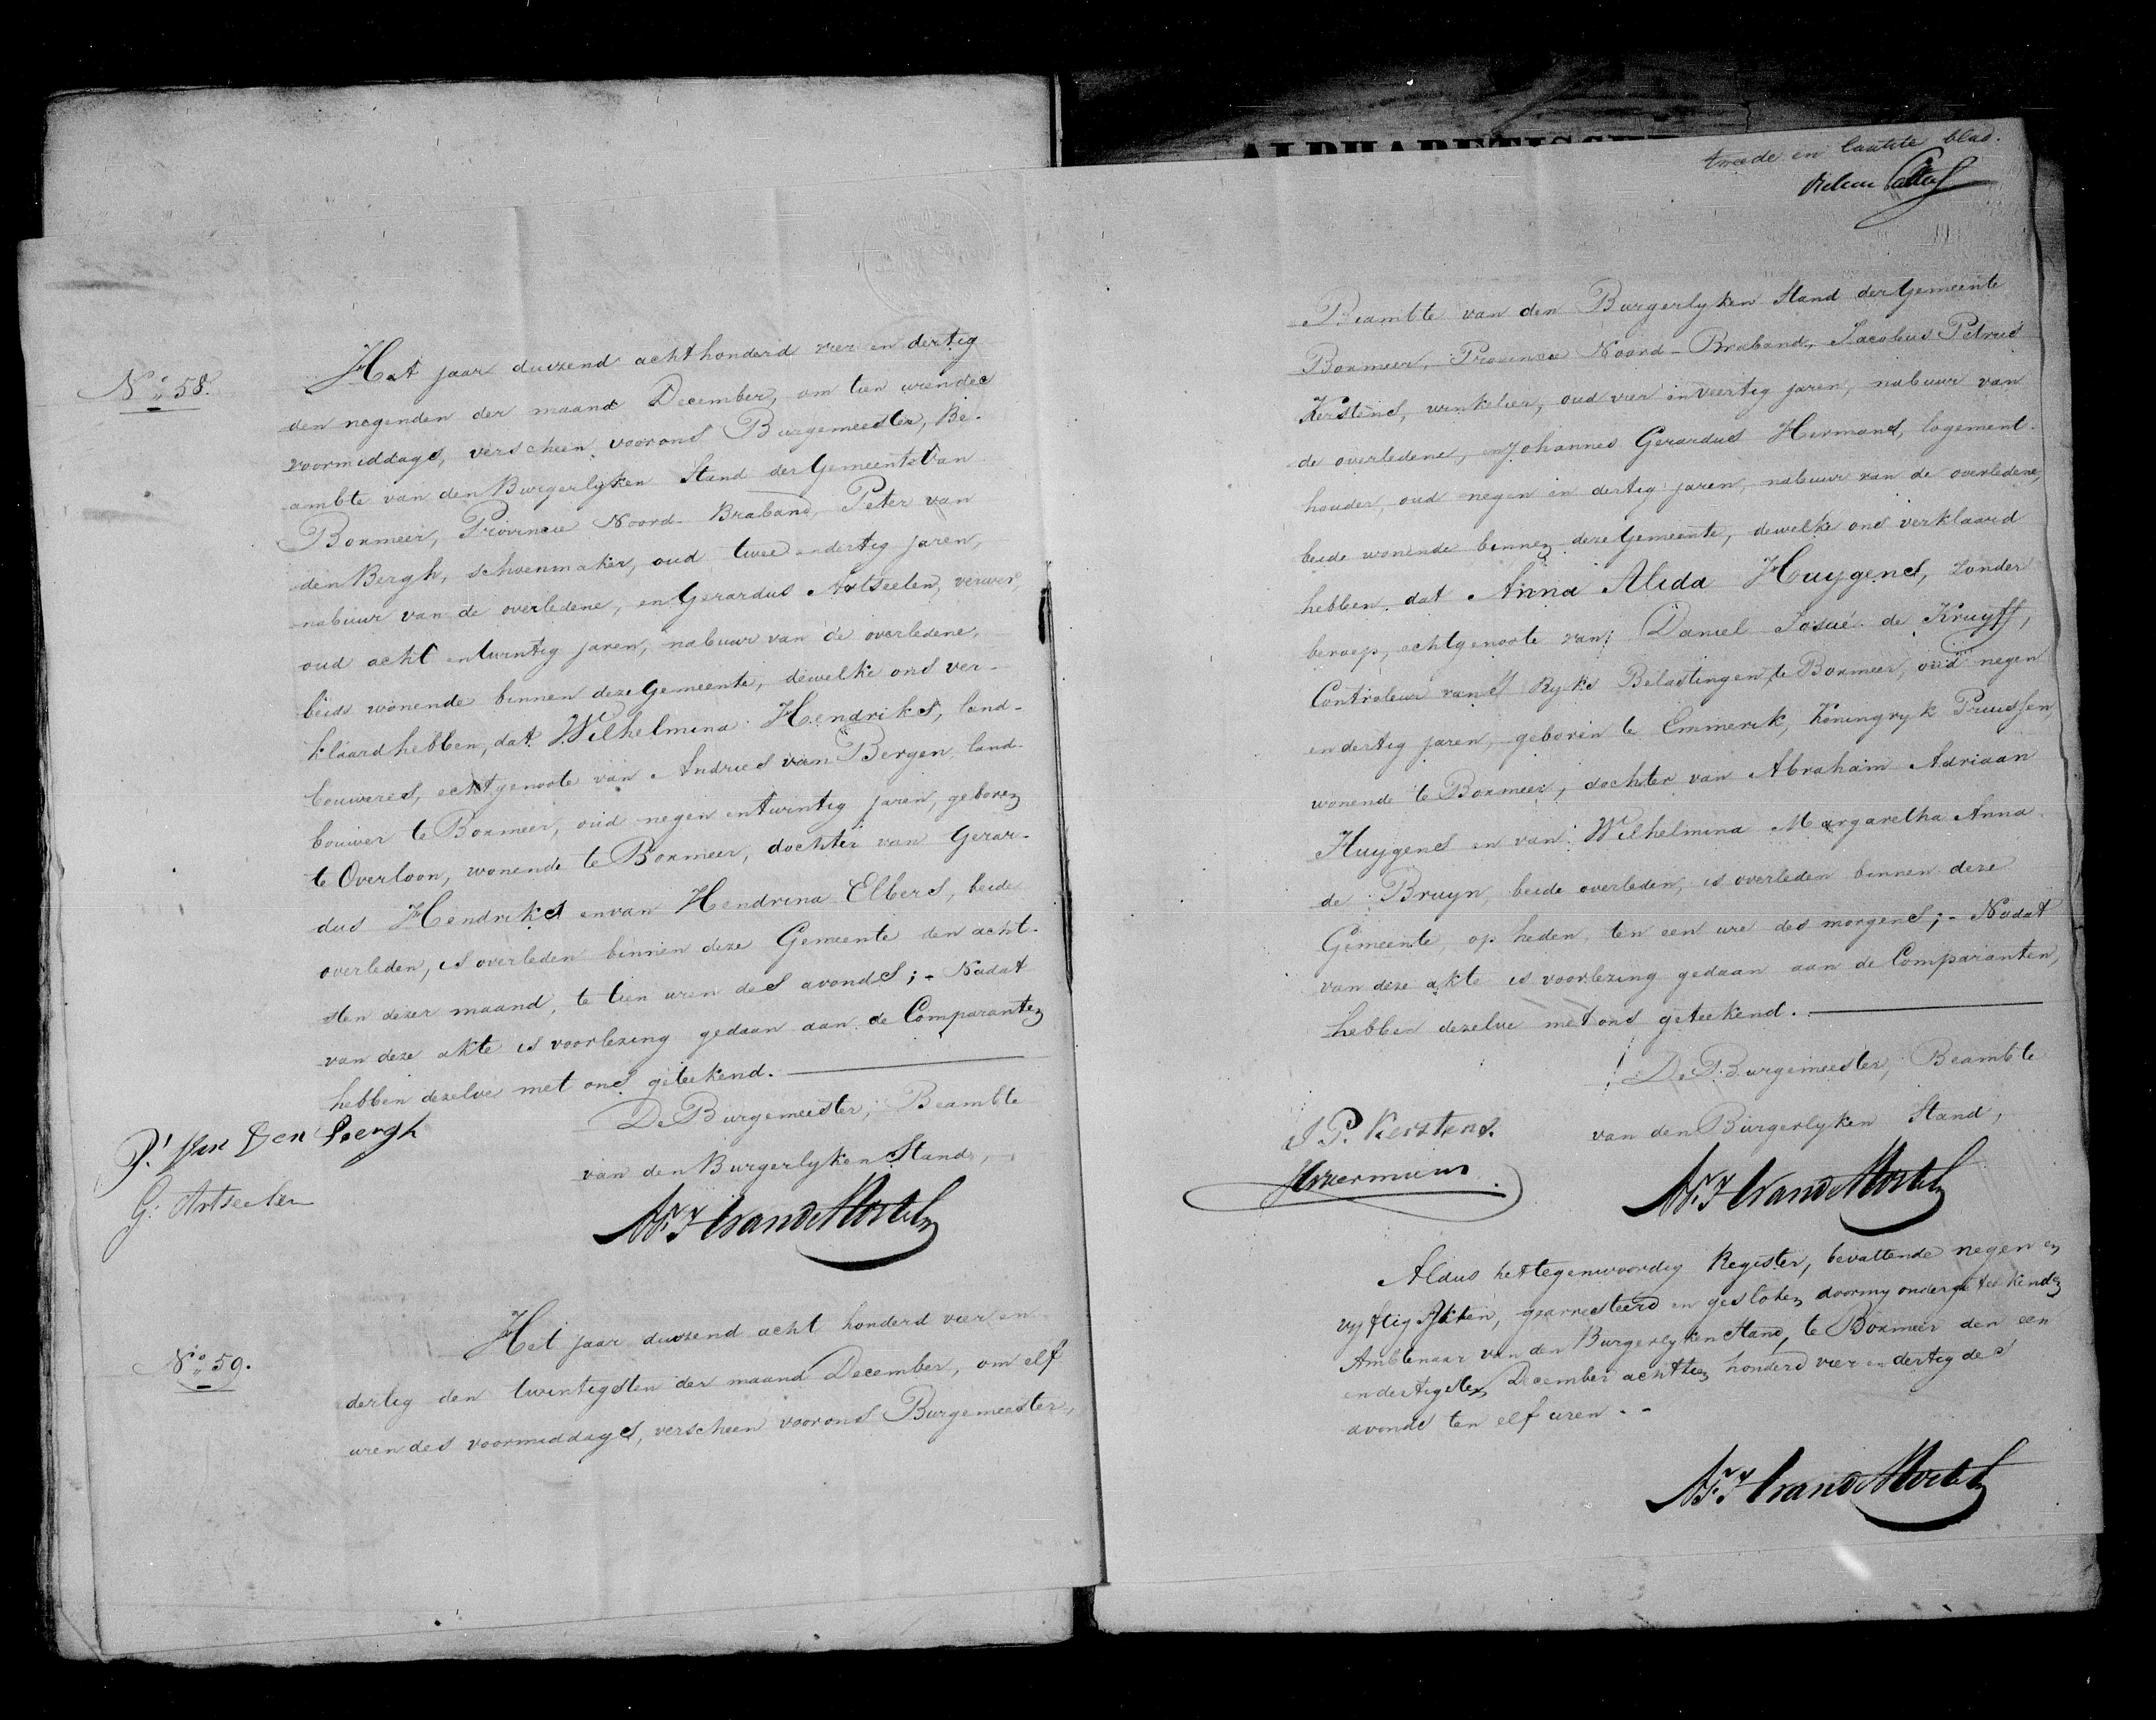 No. 58.
Het jaar duizend achthonderd vier en dertig
den negenden der maand December, om tien uren des
voormiddags, verscheen voor ons Burgemeester, Be-
ambte van den Burgerlyken Stand der Gemeente van
Boxmeer, Provincie Noord-Braband, Peter van
den Bergh, schoenmaker, oud twee en dertig jaren,
nabuur van de overledene, en Gerardus Artseelen, verwer,
oud acht en twintig jaren, nabuur van de overledene,
beide wonende binnen deze Gemeente, dewelke ons ver-
klaard hebben, dat Wilhelmina Hendriks, land-
bouweres, echtgenoote van Andries van Bergen, land-
bouwer te Boxmeer, oud negen en twintig jaren, geboren
te Overloon, wonende te Boxmeer, dochter van Gerar-
dus Hendriks en van Hendrina Elbers, beide
overleden, is overleden binnen deze Gemeente den acht-
sten dezer maand, te tien uren des avonds; - Nadat
van deze akte is voorlezing gedaan aan de Comparanten
hebben dezelve met ons geteekend.
De Burgemeester, Beambte
van den Burgerlyken Stand,
P. van den Bergh
G. Artseelen
van de Mortel
No. 59.
Het jaar duizend acht honderd vier en
dertig den twintigsten der maand December, om elf
uren des voormiddags, verscheen voor ons Burgemeester,
ALPHABETISCHE
tweede en laatste blad.
Beambte van den Burgerlyken Stand der Gemeente
Boxmeer, Provincie Noord-Braband, Jacobus Petrus
Kerstens, winkelier, oud vier en veertig jaren, nabuur van
de overledene, en Johannes Gerardus Hermans, logement-
houder, oud negen en dertig jaren, nabuur van de overledene,
beide wonende binnen deze Gemeente, dewelke ons verklaard
hebben, dat Anna Alida Huygens, zonder
beroep, echtgenoote van Daniel Josué de Kruyff,
Controleur van 's Ryks Belastingen te Boxmeer, oud negen
en dertig jaren, geboren te Emmerik, Koningryk Pruissen,
wonende te Boxmeer, dochter van Abraham Adriaan
Huygens en van Wilhelmina Margaretha Anna
de Bruyn, beide overleden, is overleden binnen deze
Gemeente, op heden, ten een ure des morgens; - Nadat
van deze akte is voorlezing gedaan aan de Comparanten,
hebben dezelve met ons geteekend.
De Burgemeester, Beambte
van den Burgerlyken Stand,
J. P. Kerstens.
Hermans
van de Mortel
Aldus het tegenwoordig Register, bevattende negen en
vyftig Akten, gearresteerd en gesloten door my ondergeteekenden
Ambtenaar van den Burgerlyken Stand, te Boxmeer den een
en dertigsten December achttien honderd vier en dertig des
avonds ten elf uren.
van de Mortel